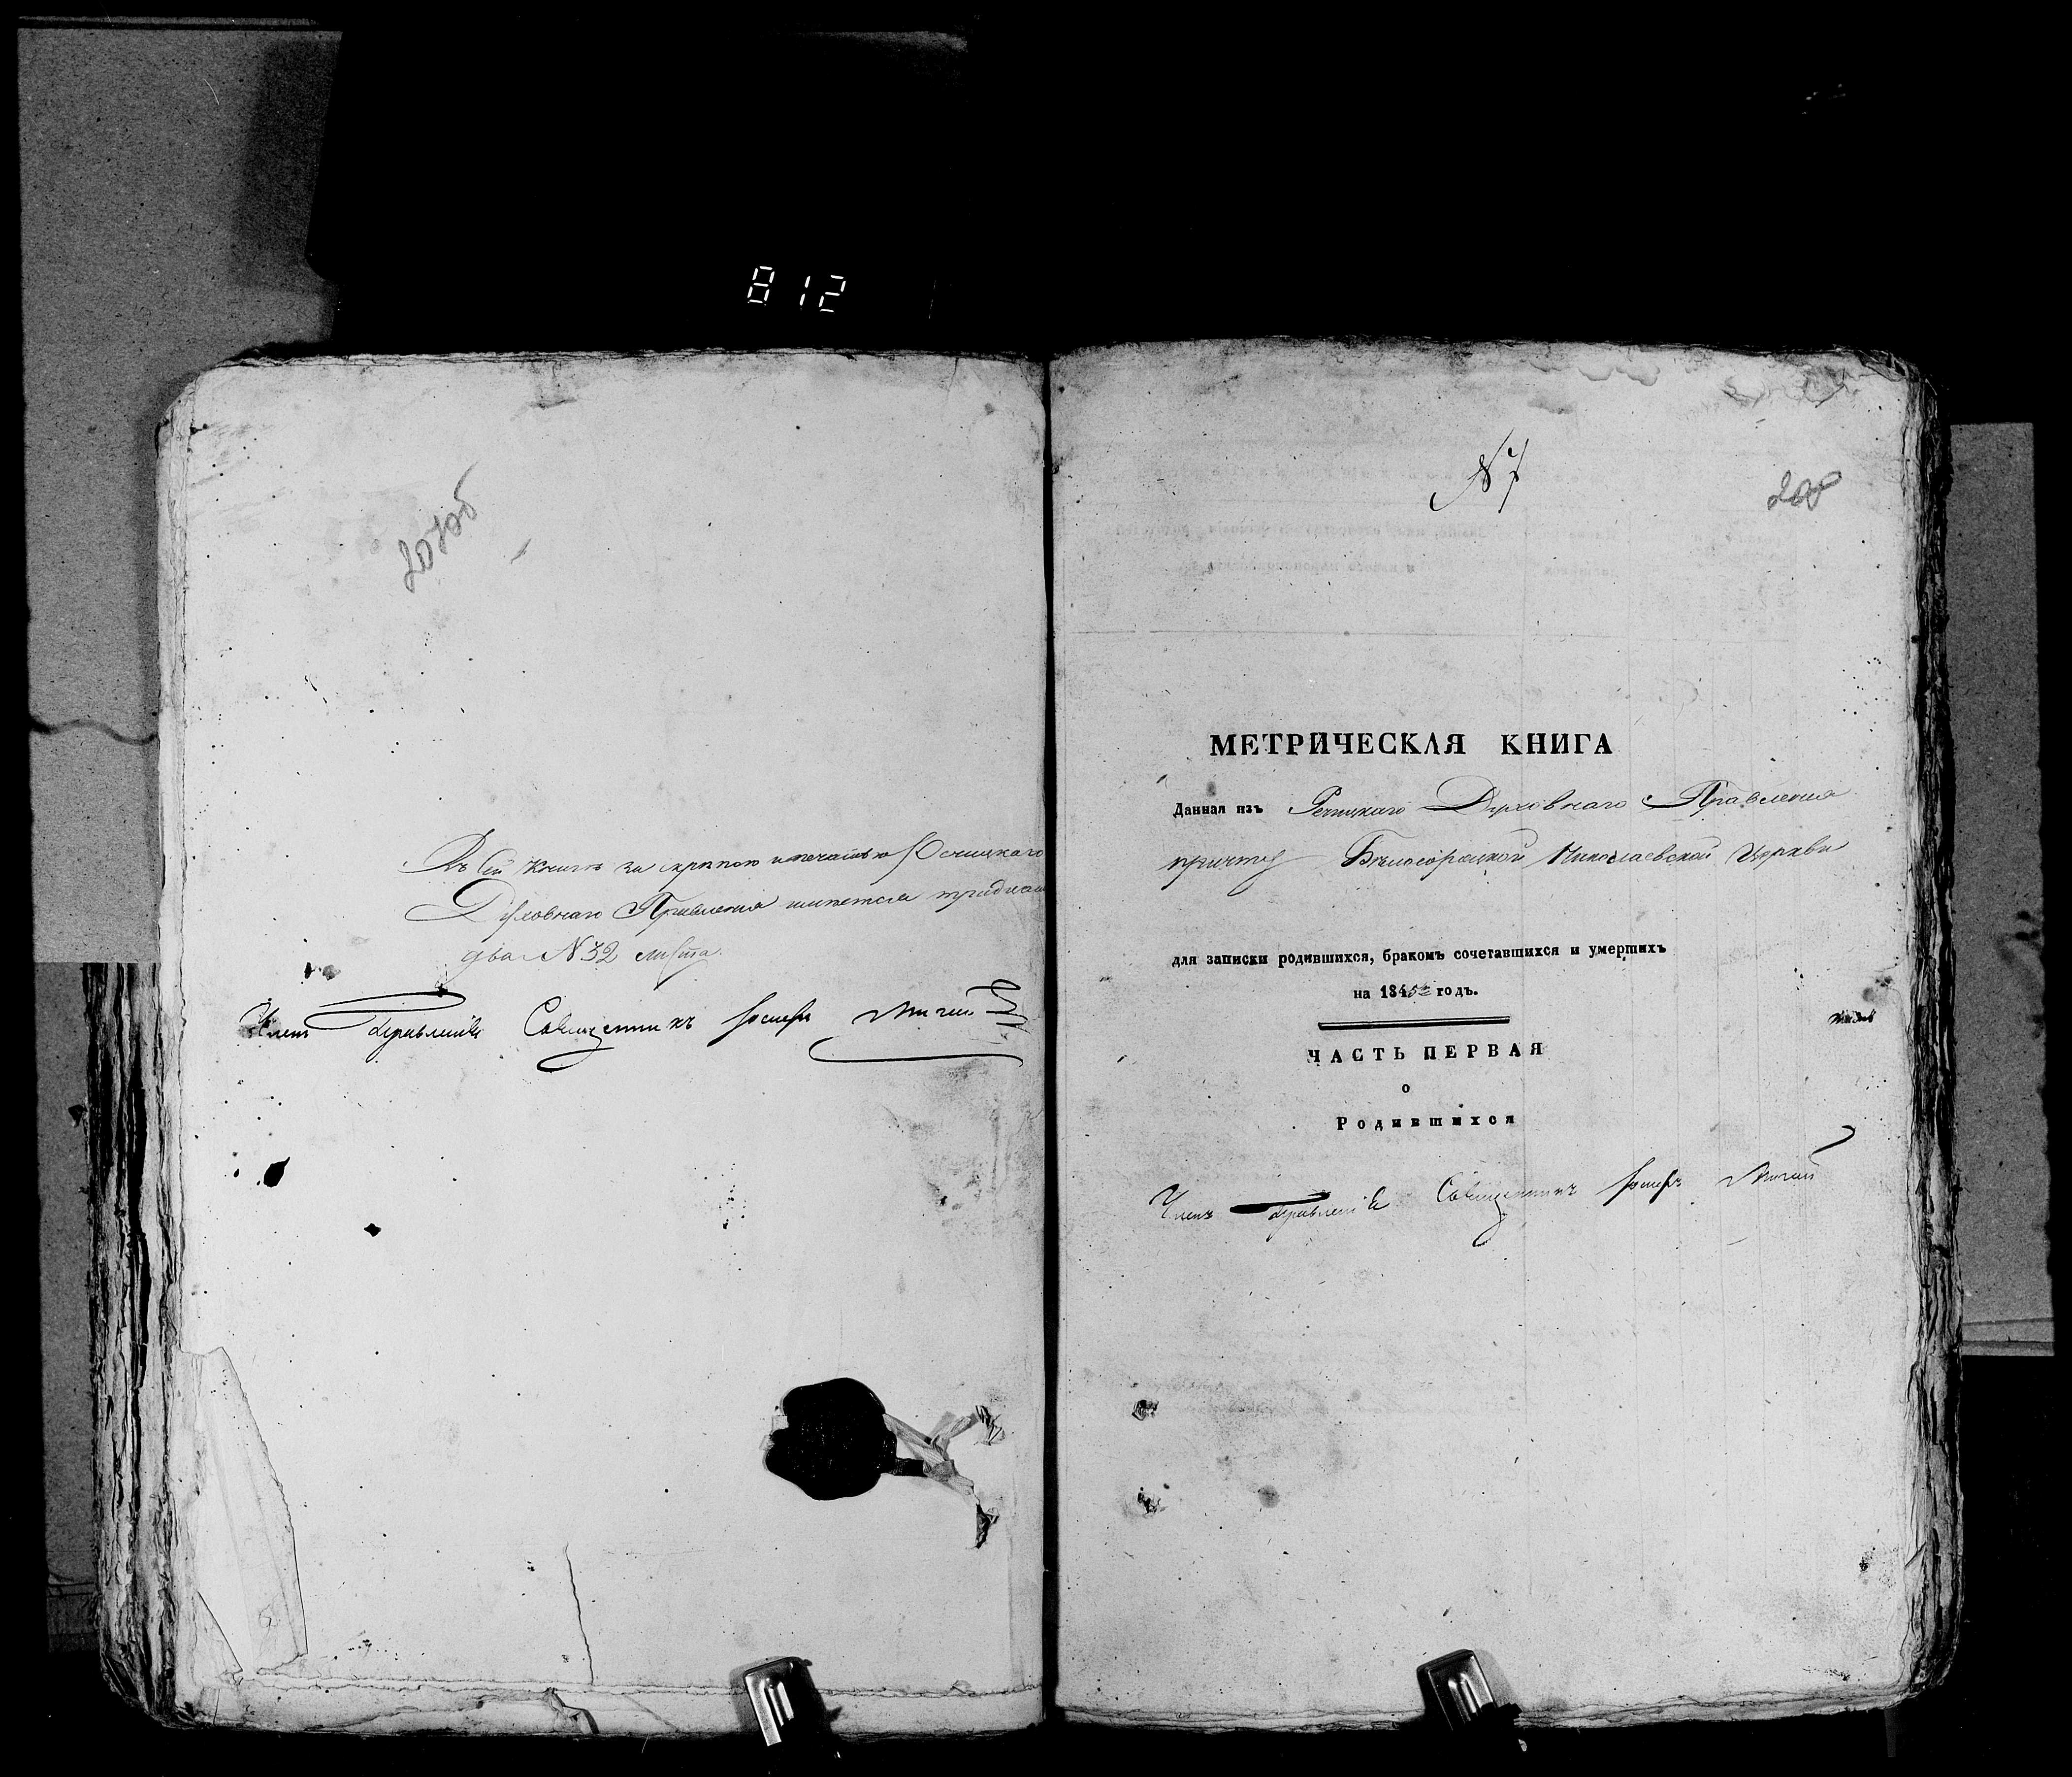 812
207об
Въ сей книгѣ за скрепою и печатью Речицкаго
Духовнаго Правления имѣется тридцать
два № 32 листа.
Членъ Правления Священникъ Иосифъ
№ 7
208
МЕТРИЧЕСКАЯ КНИГА
Данная изъ Речицкаго Духовнаго Правления
причту Бѣлосороцкой Николаевской Церкви
для записки родившихся, бракомъ сочетавшихся и умершихъ
на 1845 годъ.
ЧАСТЬ ПЕРВАЯ
о
Родившихся
Членъ Правления Священникъ Иосифъ